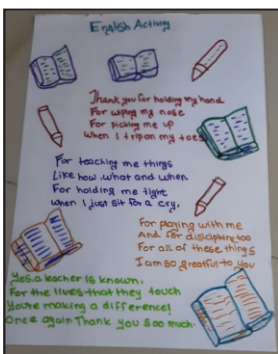 English Activity
Thank you for holding my hand
For wiping my nose
For picking me up
When I trip on my toes
For teaching me things
Like how what and when
For holding me tight
when I just sit for a cry.
For playing with me
And for discipling too
For all of these things
I am so greatful to you
Yes, a teacher is known,
For the lives that they touch
You're making a difference!
Once again Thank you Soo much